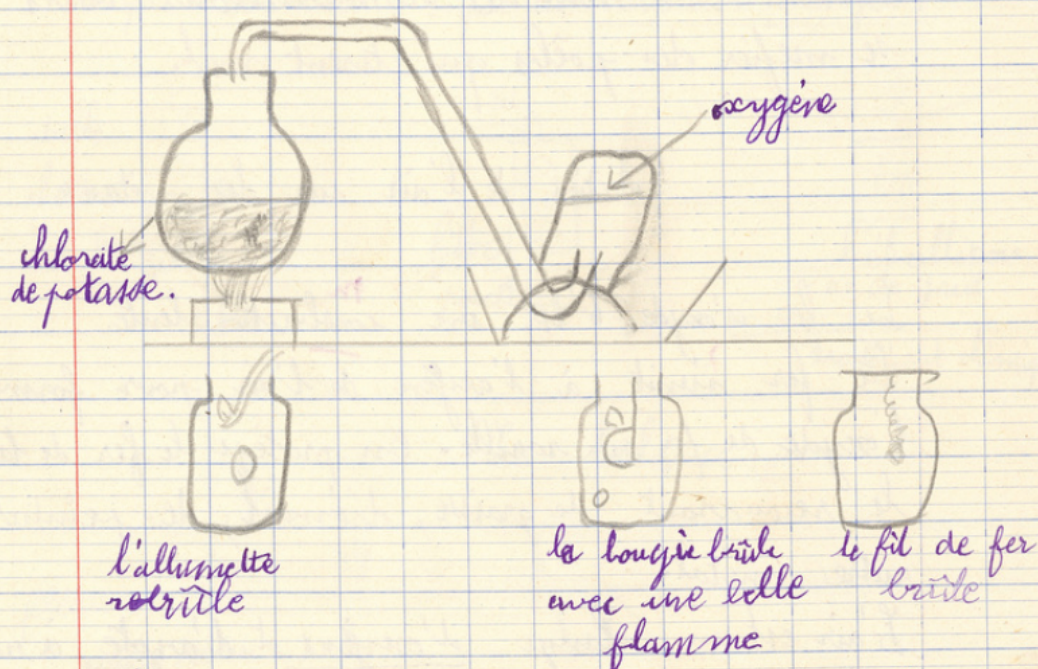 oxygène
chlorate
de potasse.
l'allumette
rebrûle
la bougie brûle
avec une belle
flamme
le fil de fer
brûle